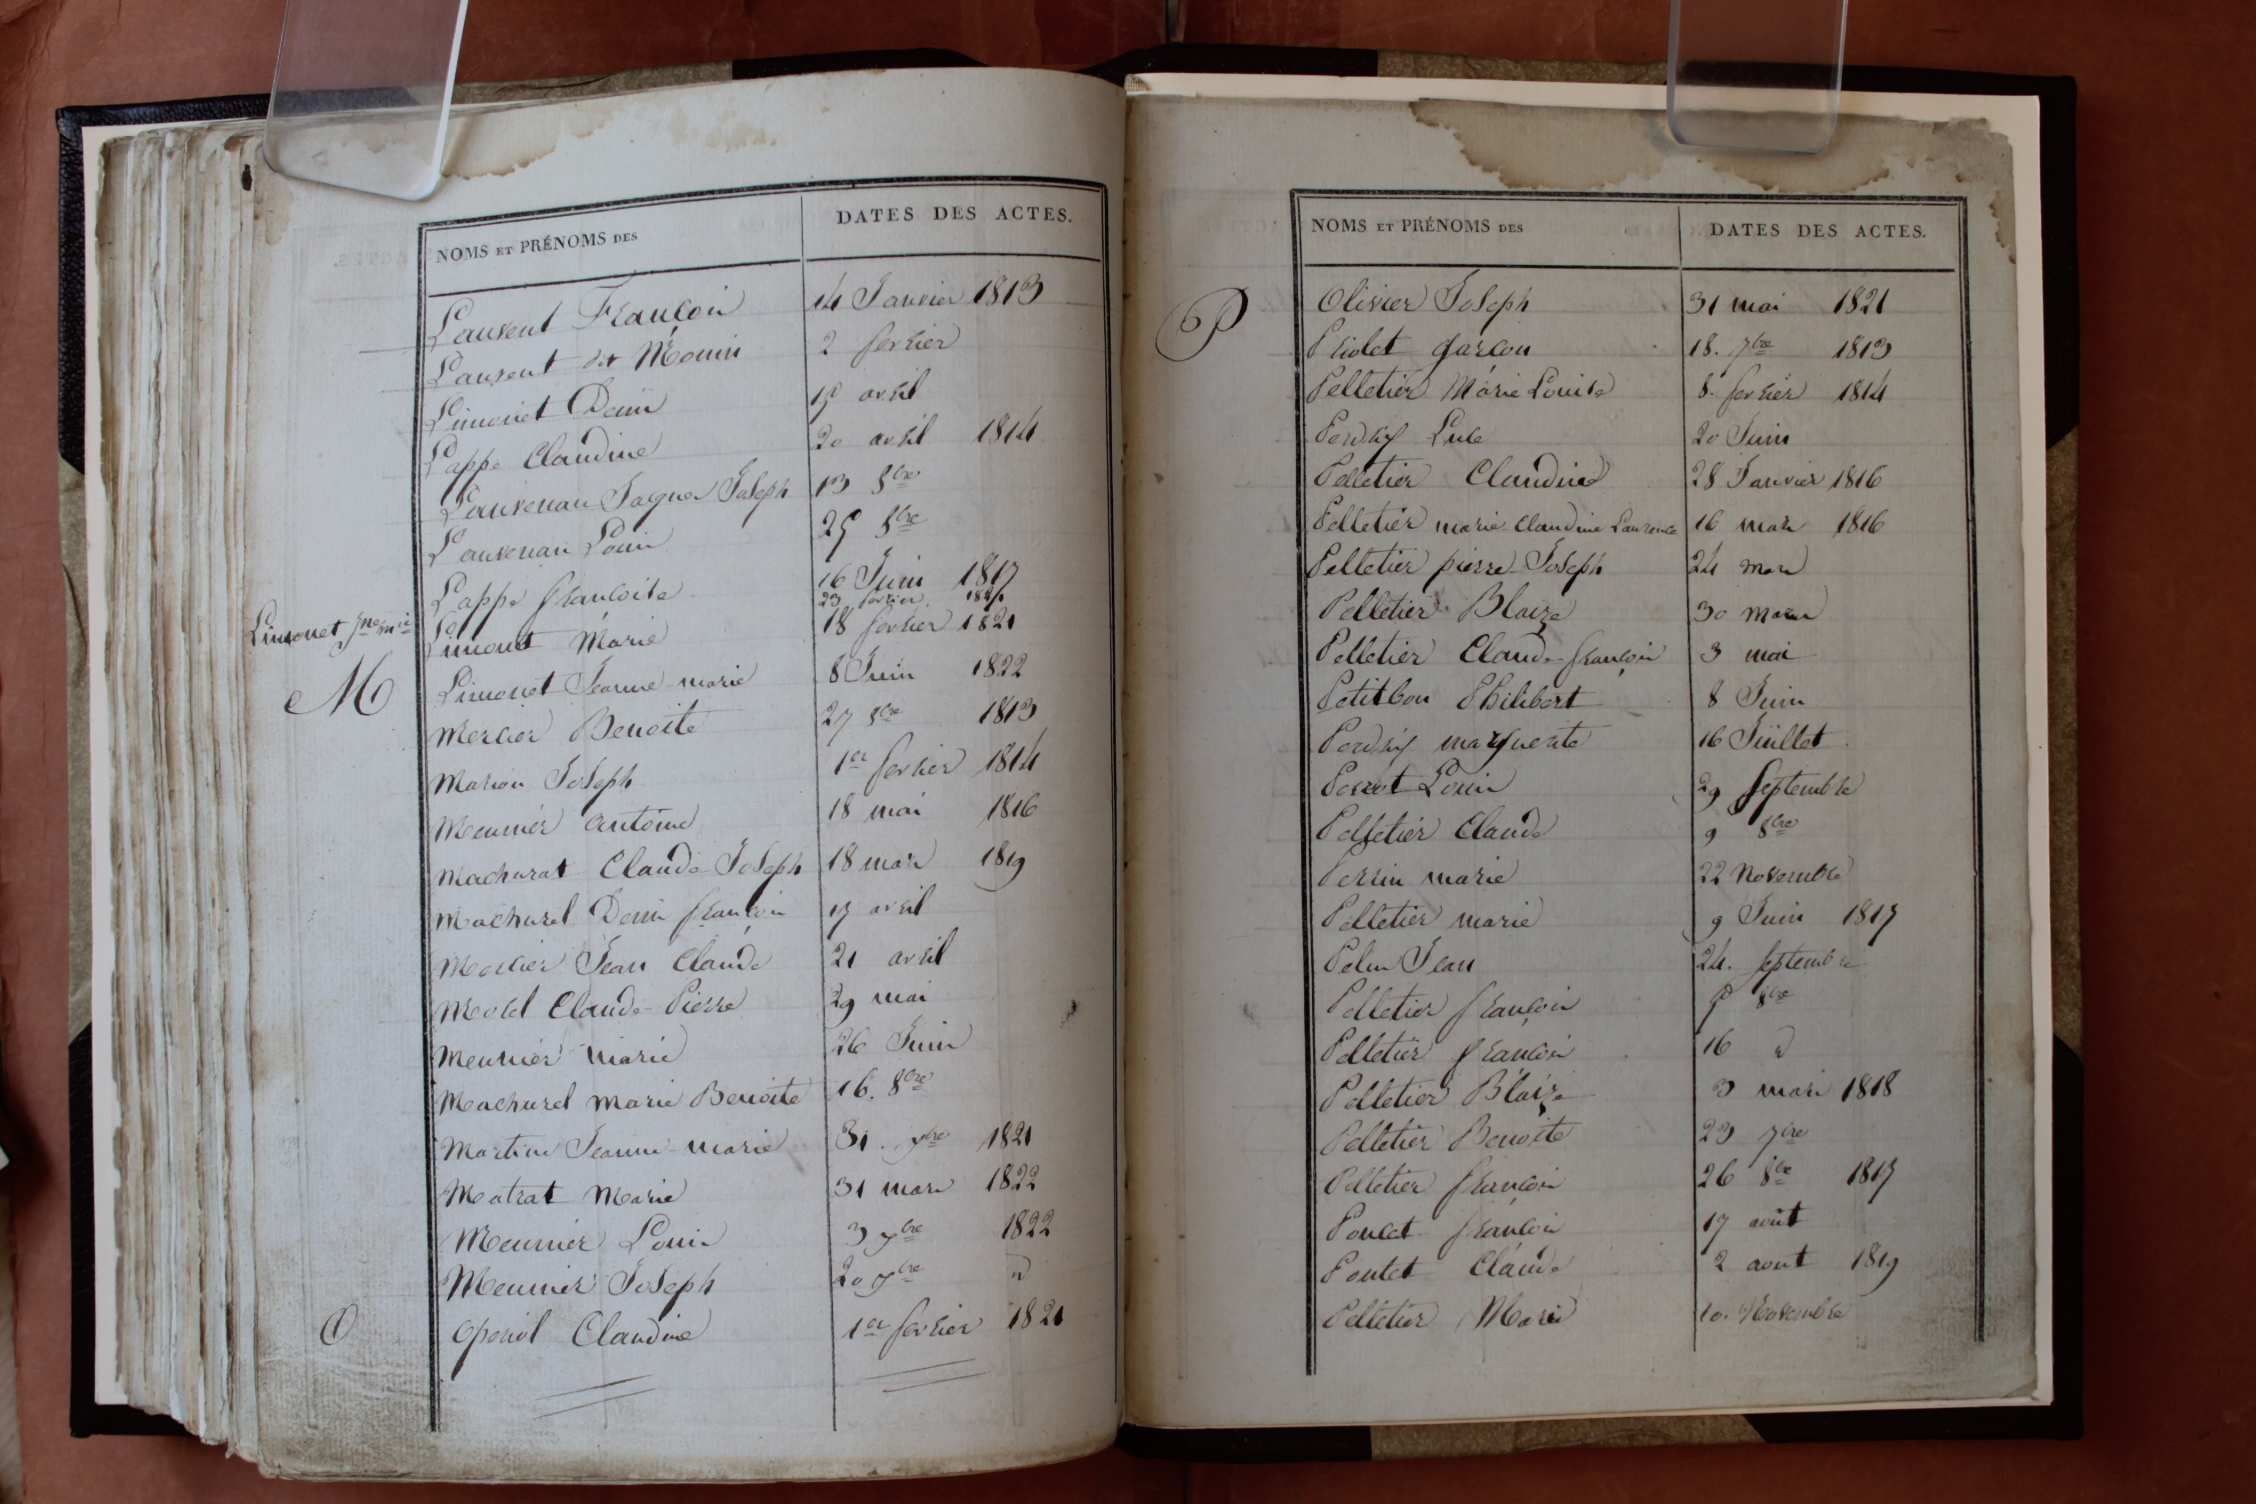 NOMS ET PRÉNOMS DES DATES DES ACTES.
Laurent François 14 Janvier 1813
Laurent dit Monin 2 fevrier
Limonet Denis 15 avril
Lappe Claudine 20 avril 1814
Lauvenau Jaques Joseph 13 8bre
Lauvenau Louis 25 8bre
Lappe françoise 16 Juin 1817
Limonet Jne mie 23 fevrier
Limonet Marie 18 fevrier 1821
M
Limonet Jeanne marie 8 Juin 1822
Mercier Benoite 27 8bre 1813
Marion Joseph 1er fevrier 1814
Meunier antoine 18 mai 1816
Machurat Claude Joseph 18 mars 1819
Machurel Denis françois 17 avril
Mercier Jean Claude 21 avril
Morel Claude Pierre 29 mai
Meunier marie 26 Juin
Machurel marie Benoite 16. 8bre
Martin Jeanne marie 31. 1821
Matrat Marie 31 mars 1822
Meunier Louis 3 7bre 1822
Meunier Joseph 20 7bre d
O
Claudine 1er fevrier 1821
NOMS ET PRÉNOMS DES DATES DES ACTES.
Olivier Joseph 31 mai 1821
P
Priolet garçon 18. 7bre 1813
Pelletier Marie Louise 8. fevrier 1814
Luce 20 Juin
Pelletier Claudine 28 Janvier 1816
Pelletier marie Claudine Laurence 16 mars 1816
Pelletier pierre Joseph 24 mars
Pelletier Blaize 30 mars
Pelletier Claude françois 3 mai
Petitbon Philibert 8 Juin
marguerite 16 Juillet
Perrot Louis 29 Septembre
Pelletier Claude 9 8bre
Perrin marie 22 Novembre
Pelletier marie 9 Juin 1817
Jean 24. Septembre
Pelletier françois 5 8bre
Pelletier françois 16 d
Pelletier Blaize 3 mars 1818
Pelletier Benoite 23 7bre
Pelletier françois 26 8bre 1817
Poncet françois 17 août
Pontet Claude 2 aout 1819
Pelletier Marie 10. Novembre